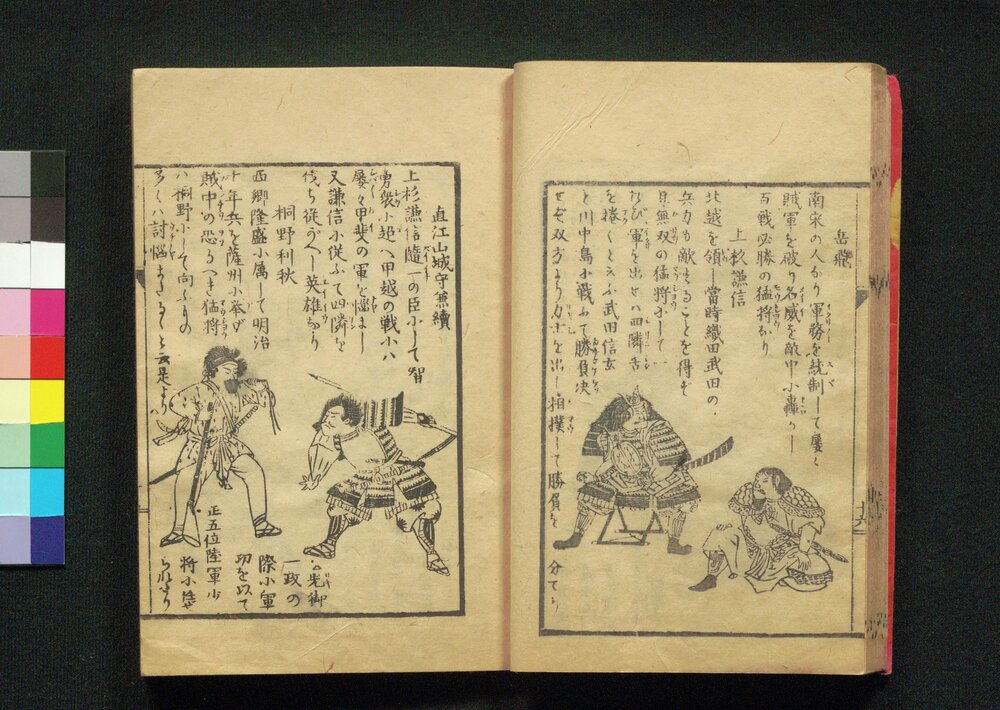 岳飛
南宋の人なり軍務を統制して屡々
賊軍を破り名威を敵中小轟かし
百戦必勝の猛将なり
上杉謙信
北越を領し當時織田武田の
兵力も敵することを得ず
且無双の猛将小して
ひとたび軍を出せハ四隣舌
を捲くと云ふ武田信玄
と川中島小戦ふて勝負决
せず双方より力士を出し相撲して勝負を分てり
直江山城守兼續
上杉謙信隨一の臣小して智
勇衆小超へ甲越の戦小ハ
屡々甲斐の軍を悩まし
又謙信小従ふて四隣を
伐ち従がへし英雄なり
桐野利秋
西郷隆盛小属して明治
十年兵を薩州小挙げ
賊中の恐るべき猛将
ハ桐野小して向ふもの
多くハ討悩まさるゝと云是より
御
一政の
際小軍
功を以て
正五位陸軍少
将小